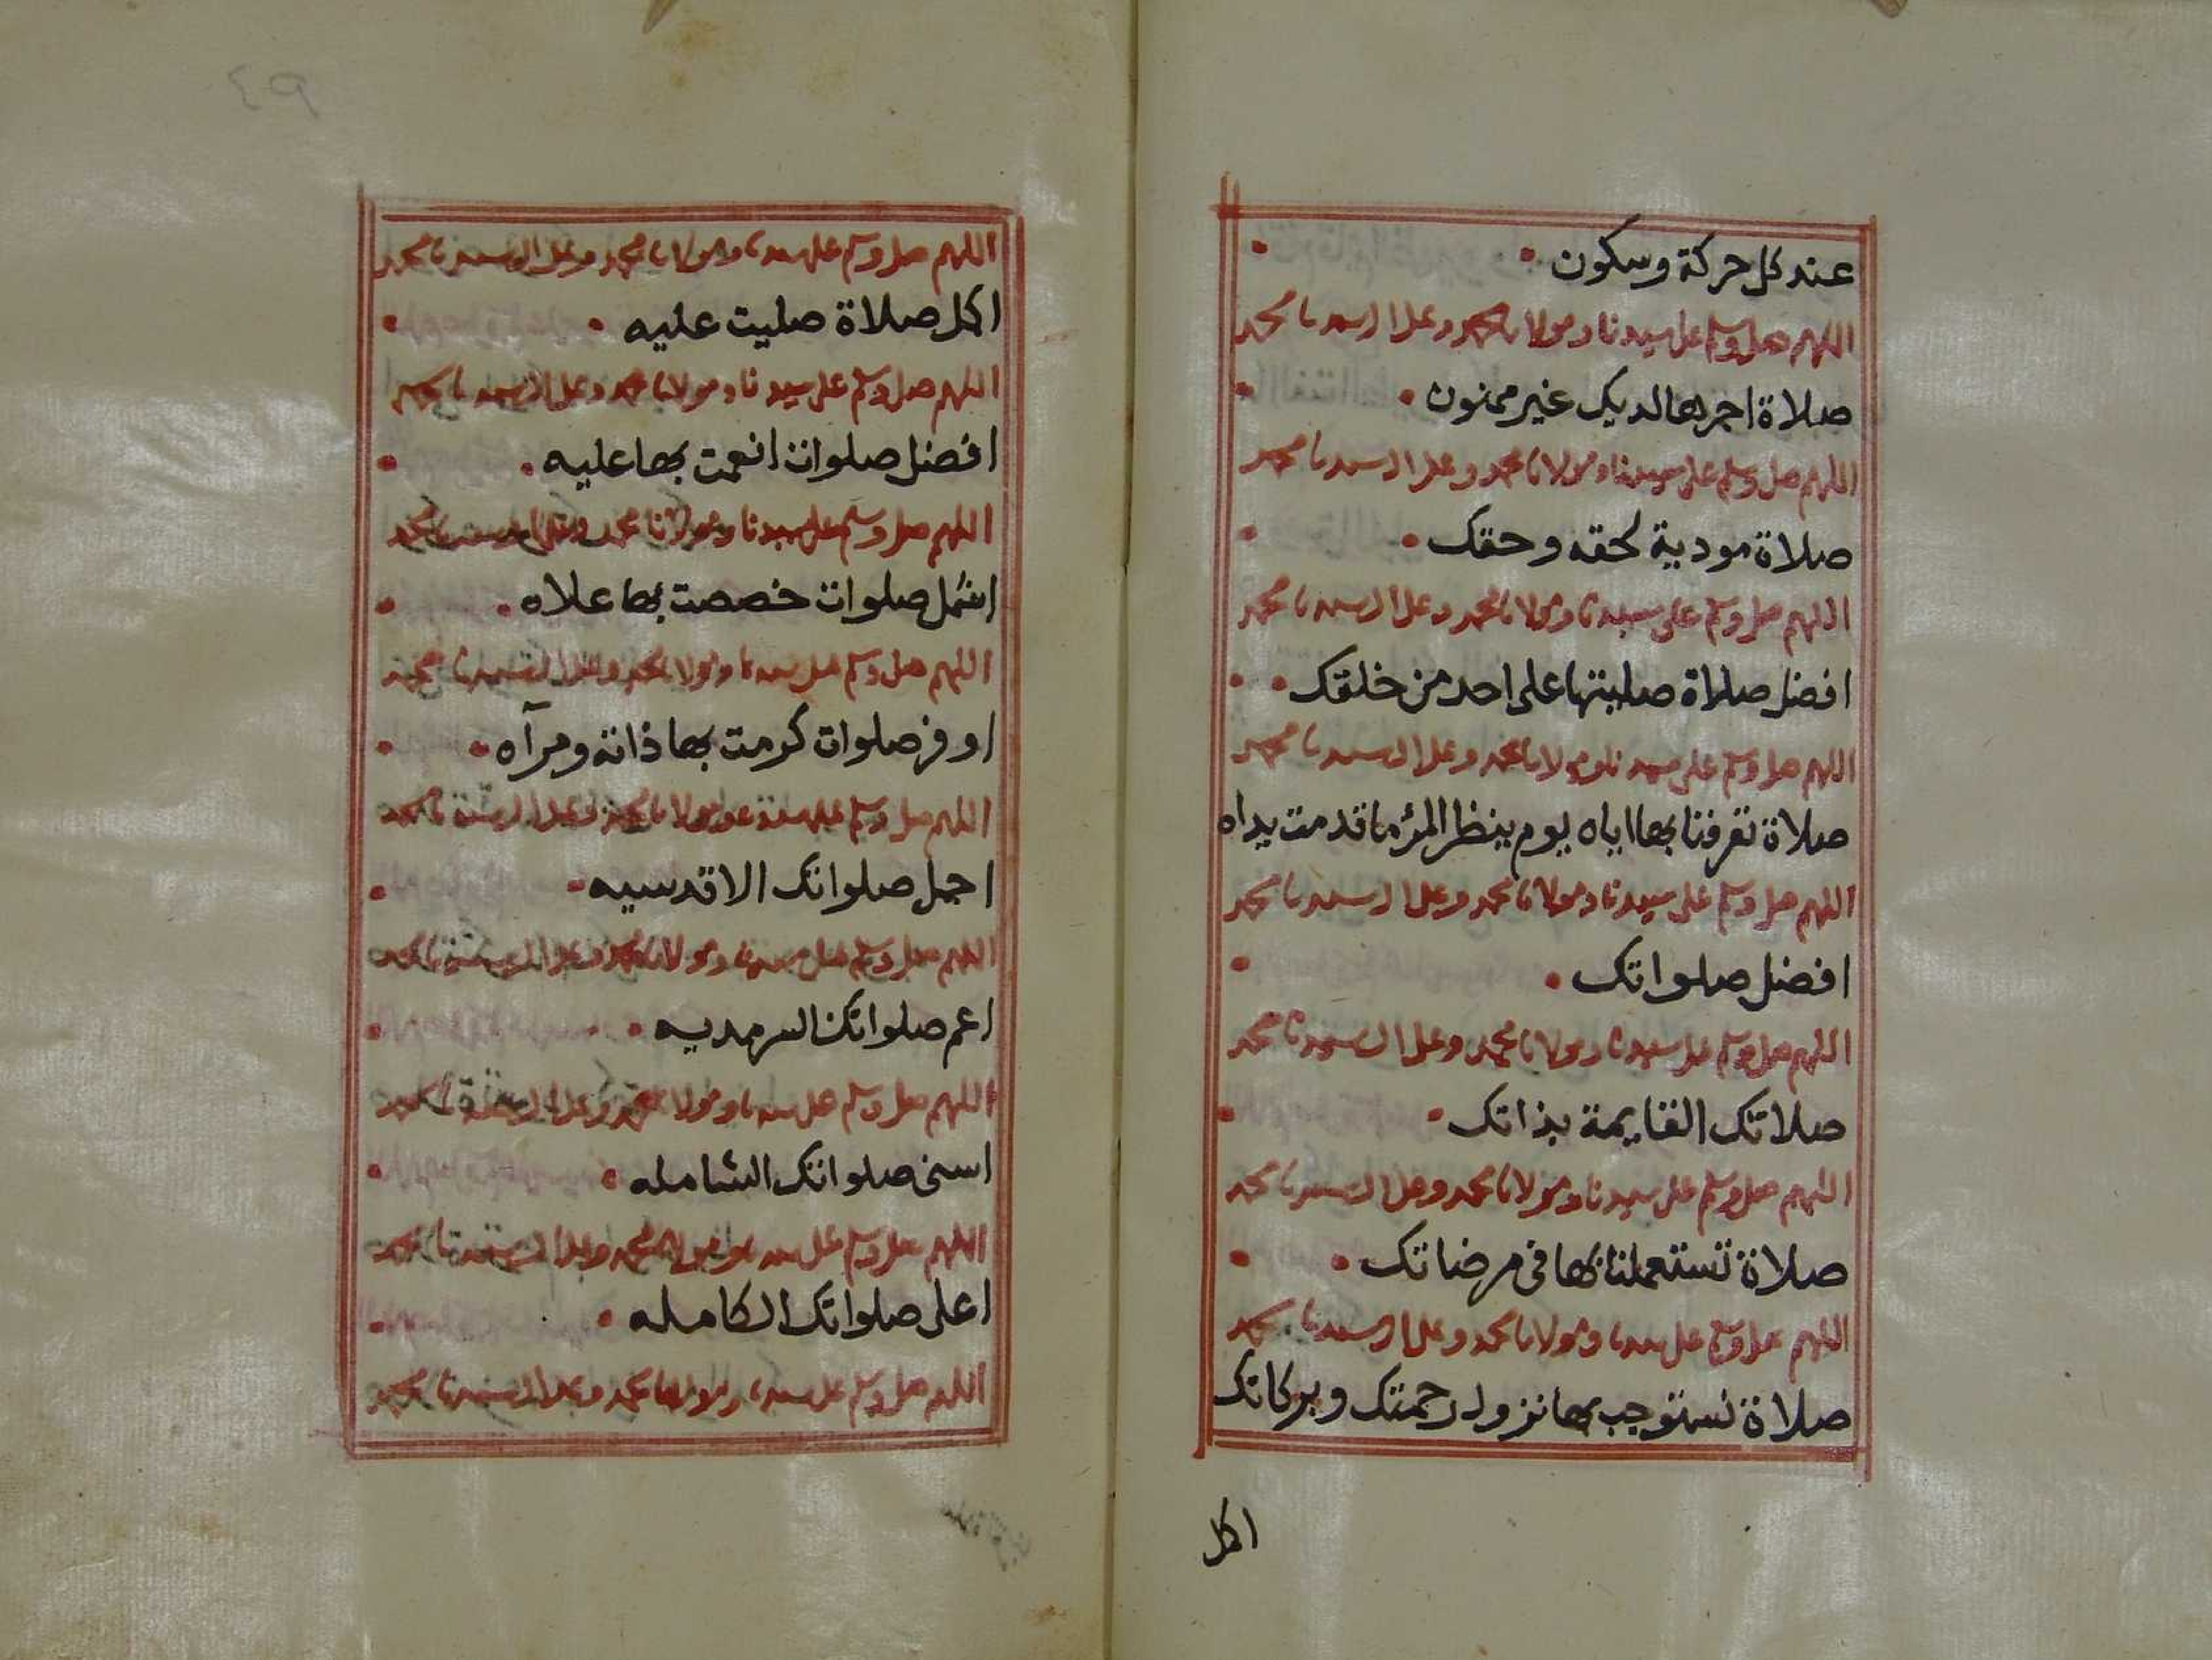 عند كل حركة وسكون
اللهم صل وسلم على سيدنا ومولانا محمد وعلى ال سيدنا محمد
صلاة اجرها لديك غير ممنون
اللهم صل وسلم على سيدنا ومولانا محمد وعلى ال سيدنا محمد
صلاة مودية لحقه وحقك
اللهم صل وسلم على سيدنا ومولانا محمد وعلى ال سيدنا محمد
افضل صلاة صليتها على احد من خلقك
اللهم صل وسلم على سيدنا ومولانا محمد وعلى ال سيدنا محمد
صلاة تعرفنا بها اياه يوم ينظر المرؤ ما قدمت يداه
اللهم صل وسلم على سيدنا ومولانا محمد وعلى ال سيدنا محمد
افضل صلواتك
اللهم صل وسلم على سيدنا ومولانا محمد وعلى ال سيدنا محمد
صلاتك القايمة بذاتك
اللهم صل وسلم على سيدنا ومولانا محمد وعلى ال سيدنا محمد
صلاة تستعملنا بها في مرضاتك
اللهم صل وسلم على سيدنا ومولانا محمد وعلى ال سيدنا محمد
صلاة نستوجب بها نزول رحمتك وبركاتك
اكمل
٤٩
اللهم صل وسلم على سيدنا ومولانا محمد وعلى ال سيدنا محمد
اكمل صلاة صليت عليه
اللهم صل وسلم على سيدنا ومولانا محمد وعلى ال سيدنا محمد
افضل صلوات انعمت بها عليه
اللهم صل وسلم على سيدنا ومولانا محمد وعلى ال سيدنا محمد
اشمل صلوات خصصت بها علاه
اللهم صل وسلم على سيدنا ومولانا محمد وعلى ال سيدنا محمد
اوفر صلوات كرمت بها ذاته ومرآه
اللهم صل وسلم على سيدنا ومولانا محمد وعلى ال سيدنا محمد
اجمل صلواتك الاقدسيه
اللهم صل وسلم على سيدنا ومولانا محمد وعلى ال سيدنا محمد
اعم صلواتك السرمديه
اللهم صل وسلم على سيدنا ومولانا محمد وعلى ال سيدنا محمد
اسنى صلواتك الشامله
اللهم صل وسلم على سيدنا ومولانا محمد وعلى ال سيدنا محمد
اعلى صلواتك الكامله
اللهم صل وسلم على سيدنا ومولانا محمد وعلى ال سيدنا محمد